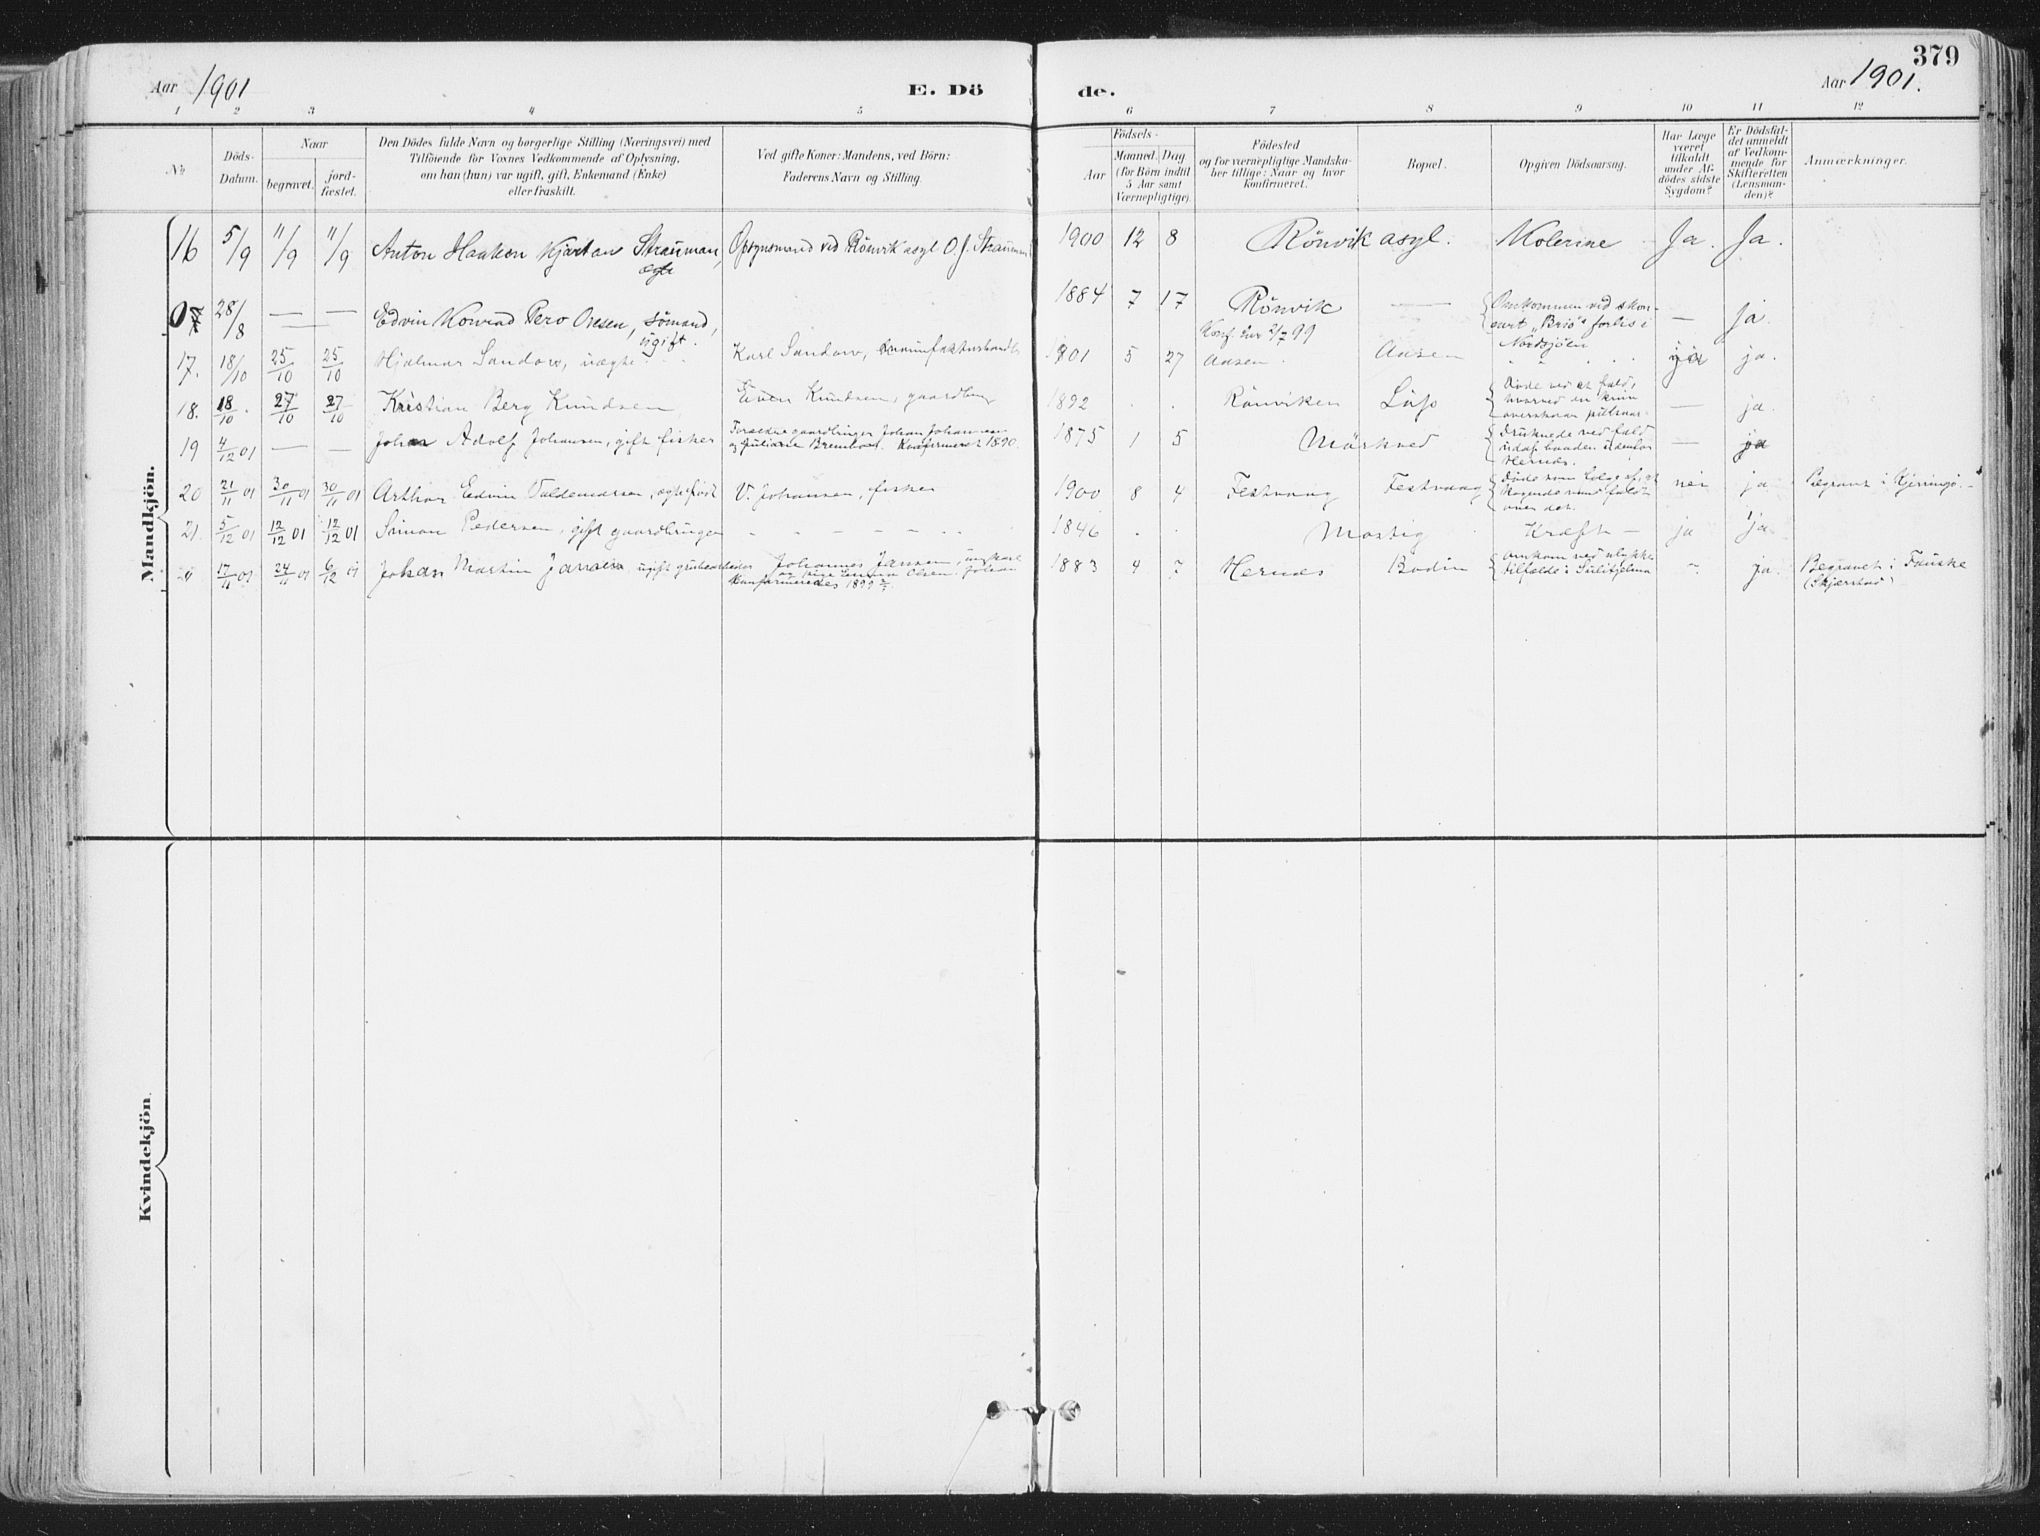 379
Aar 1901
E. Dö
de.
Aar 1901.
1 2 3 4 5 6 7 8 9 10 11 12
No
Döds-
Datum.
Naar
begravet.
jord-
fæstet.
Den Dödes fulde Navn og borgerlige Stilling (Næringsvei) med
Tilföiende for Voxnes Vedkommende af Oplysning,
om han (hun) var ugift, gift, Enkemand (Enke)
eller fraskilt.
Ved gifte Koner: Mandens, ved Börn:
Faderens Navn og Stilling.
Födsels-
Aar
Maaned. Dag
(for Börn indtil
5 Aar samt
Værnepligtige).
Födested
og for værnepligtige Mandska-
ber tillige: Naar og hvor
konfirmeret.
Bopæl.
Opgiven Dödsaarsag.
Har Læge
været
tilkaldt
under Af-
dödes sidste
Sygdom?
Er Dödsfal-
det anmeldt
af Vedkom-
mende for
Skifteretten
(Lensman-
den)?
Anmærkninger.
Mandkjön.
16 5/9 11/9 11/9 Anton Haakon Kjartan Strauman, Opsynsmand ved Rönvik asyl O. J. Strauman 1900 12 8 Rönvik asyl. Kolerine Ja. Ja.
ægte
28/8 — — Edvin Konrad Pero Ovesen, sömand, 1884 7 17 Rönvik — Omkommen ved skon-
ugift. Konf. 2/7 99 nert "Brio"s forlis i — ja.
Nordsjöen
17. 18/10 25/10 25/10 Hjalmar Sandow, uægte Karl Sandow, 1901 5 27 Aasen Aasen " " ja ja.
18. 18/10. 27/10 27/10 Kristian Berg Knudsen Even Knudsen, gaardbr 1892 . . Rönviken Löp Döde ved et fald,
hvorved en — ja.
19 4/12 01 — — Johan Adolf Johansen, gift fisker Forældre gaardbruger Johan Johansen 1875 1 5 Mörkved Druknede ved fald — ja
og Juliane Konfirmeret 1890. ud af baaden udenfor
Hernes.
20 21/11 01 30/11 01 30/11 01 Arthur Edvin Valdemarsen, ægtefödt V. Johansen, fisker 1900 8 4 Festvaag Festvaag Döde som følge af, at nei ja Begravet i Kjerringö.
over det.
21. 5/12 01 12/12 01 12/12 01 Simon Pedersen, gift gaardbruger - - - - - 1846 . Mastig Kræft — ja ja
17/11 01 24/11 01 6/12 01 Johan Martin Jansen ugift grubearbeider Johannes Jansen, ungkarl 1883 4 ? Hernes Bodin Omkom ved ulykkes- ? ja. Begravet i Fauske
og pige Emma Olsen, tilfælde i Sulitjelma (Skjerstad)
Konfirmeredes 1899
Kvindekjön.